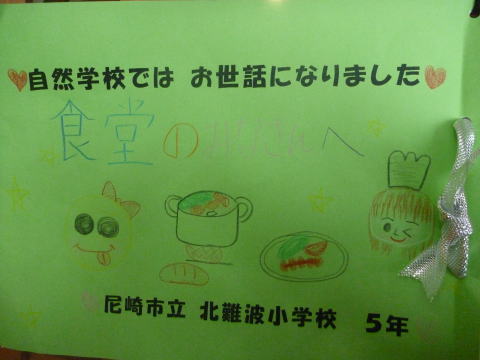 自然学校では お世話になりました
食堂のみなさんへ
尼崎市立 北難波小学校 5年